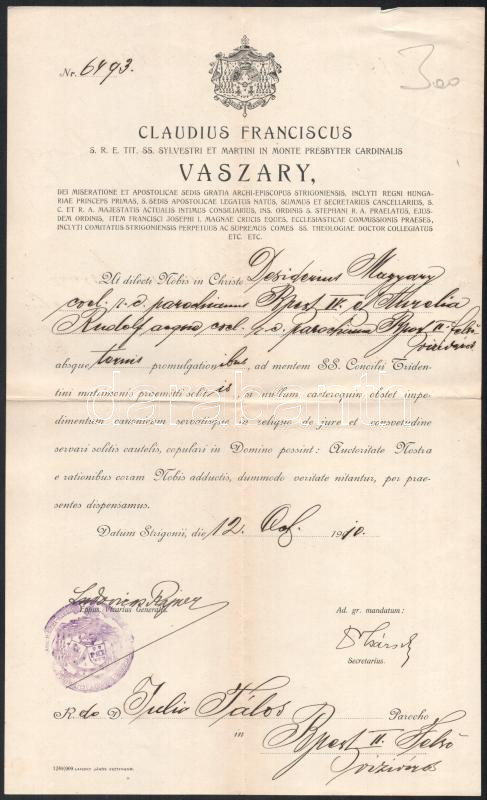 Nr. 6493.
300
CLAUDIUS FRANCISCUS
S. R. E. TIT. SS. SYLVESTRI ET MARTINI IN MONTE PRESBYTER CARDINALIS
VASZARY,
DEI MISERATIONE ET APOSTOLICAE SEDIS GRATIA ARCHI-EPISCOPUS STRIGONIENSIS, INCLYTI REGNI HUNGA-
RIAE PRINCEPS PRIMAS, S. SEDIS APOSTOLICAE LEGATUS NATUS, SUMMUS ET SECRETARIUS CANCELLARIUS, S.
C. ET R. A. MAJESTATIS ACTUALIS INTIMUS CONSILIARIUS, INS. ORDINIS S. STEPHANI R. A. PRAELATUS, EJUS-
DEM ORDINIS, ITEM FRANCISCI JOSEPHI I. MAGNAE CRUCIS EQUES, ECCLESIASTICAE COMMISSIONIS PRAESES,
INCLYTI COMITATUS STRIGONIENSIS PERPETUUS AC SUPREMUS COMES SS. THEOLOGIAE DOCTOR COLLEGIATUS
ETC. ETC.
Ut dilecti Nobis in Christo Desiderius Magyary
coel. r. c. parochianus Bpest IV. et Aurelia
Rudolf aeque coel. r. c. parochiana Bpest II. Felső
víziváros
absque ternis promulgationibus, ad mentem SS. Concilii Triden-
tini matrimonio praemitti solitis, si nullum caeteroquin obstet impe-
dimentum canonicum servatisque in reliquo de jure et consvetudine
servari solitis cautelis, copulari in Domino possint: Auctoritate Nostra
e rationibus coram Nobis adductis, dummodo veritate nitantur, per prae-
sentes dispensamus.
Datum Strigonii, die 12. Oct. 1910.
Ludovicus Rajner
Eppus, Vicarius Generalis.
Ad. gr. mandatum:
Secretarius.
R. do D Julio Tálos Parocho
in Bpest II. Felső
víziváros
darabanth